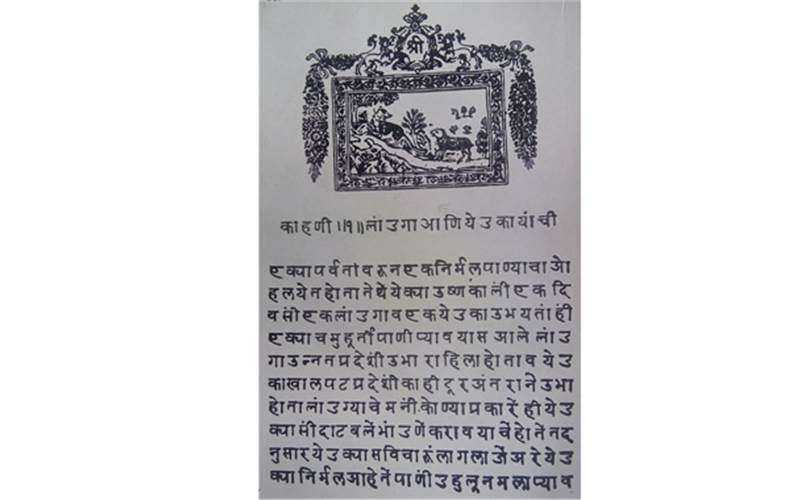 श्री
काहणी ॥१॥ लांउगा आणि येउकायांची
एक्यापर्वतांवरून एक निर्मल पाण्याचा ओ
हल येत होता तेथें येक्या उष्णकालीं एक दि
वसीं एक लांउगा व एक येउका उभयतांहीं
एक्याच मुहूर्तीं पाणी प्यावयास आले लांउ
गा उन्नतप्रदेशीं उभा राहिला होता व येउ
का खालपटप्रदेशीं काही दूर अंतराने उभा
होता लांउग्याचे मनीं कोण्याप्रकारेंही येउ
क्यासीं दाटबलें भांउणें करावयाचें होतें तद
नुसार येउक्यास विचारूं लागला जें अरे येउ
क्या निर्मल आहे तें पाणीं उहुलून मला प्याव